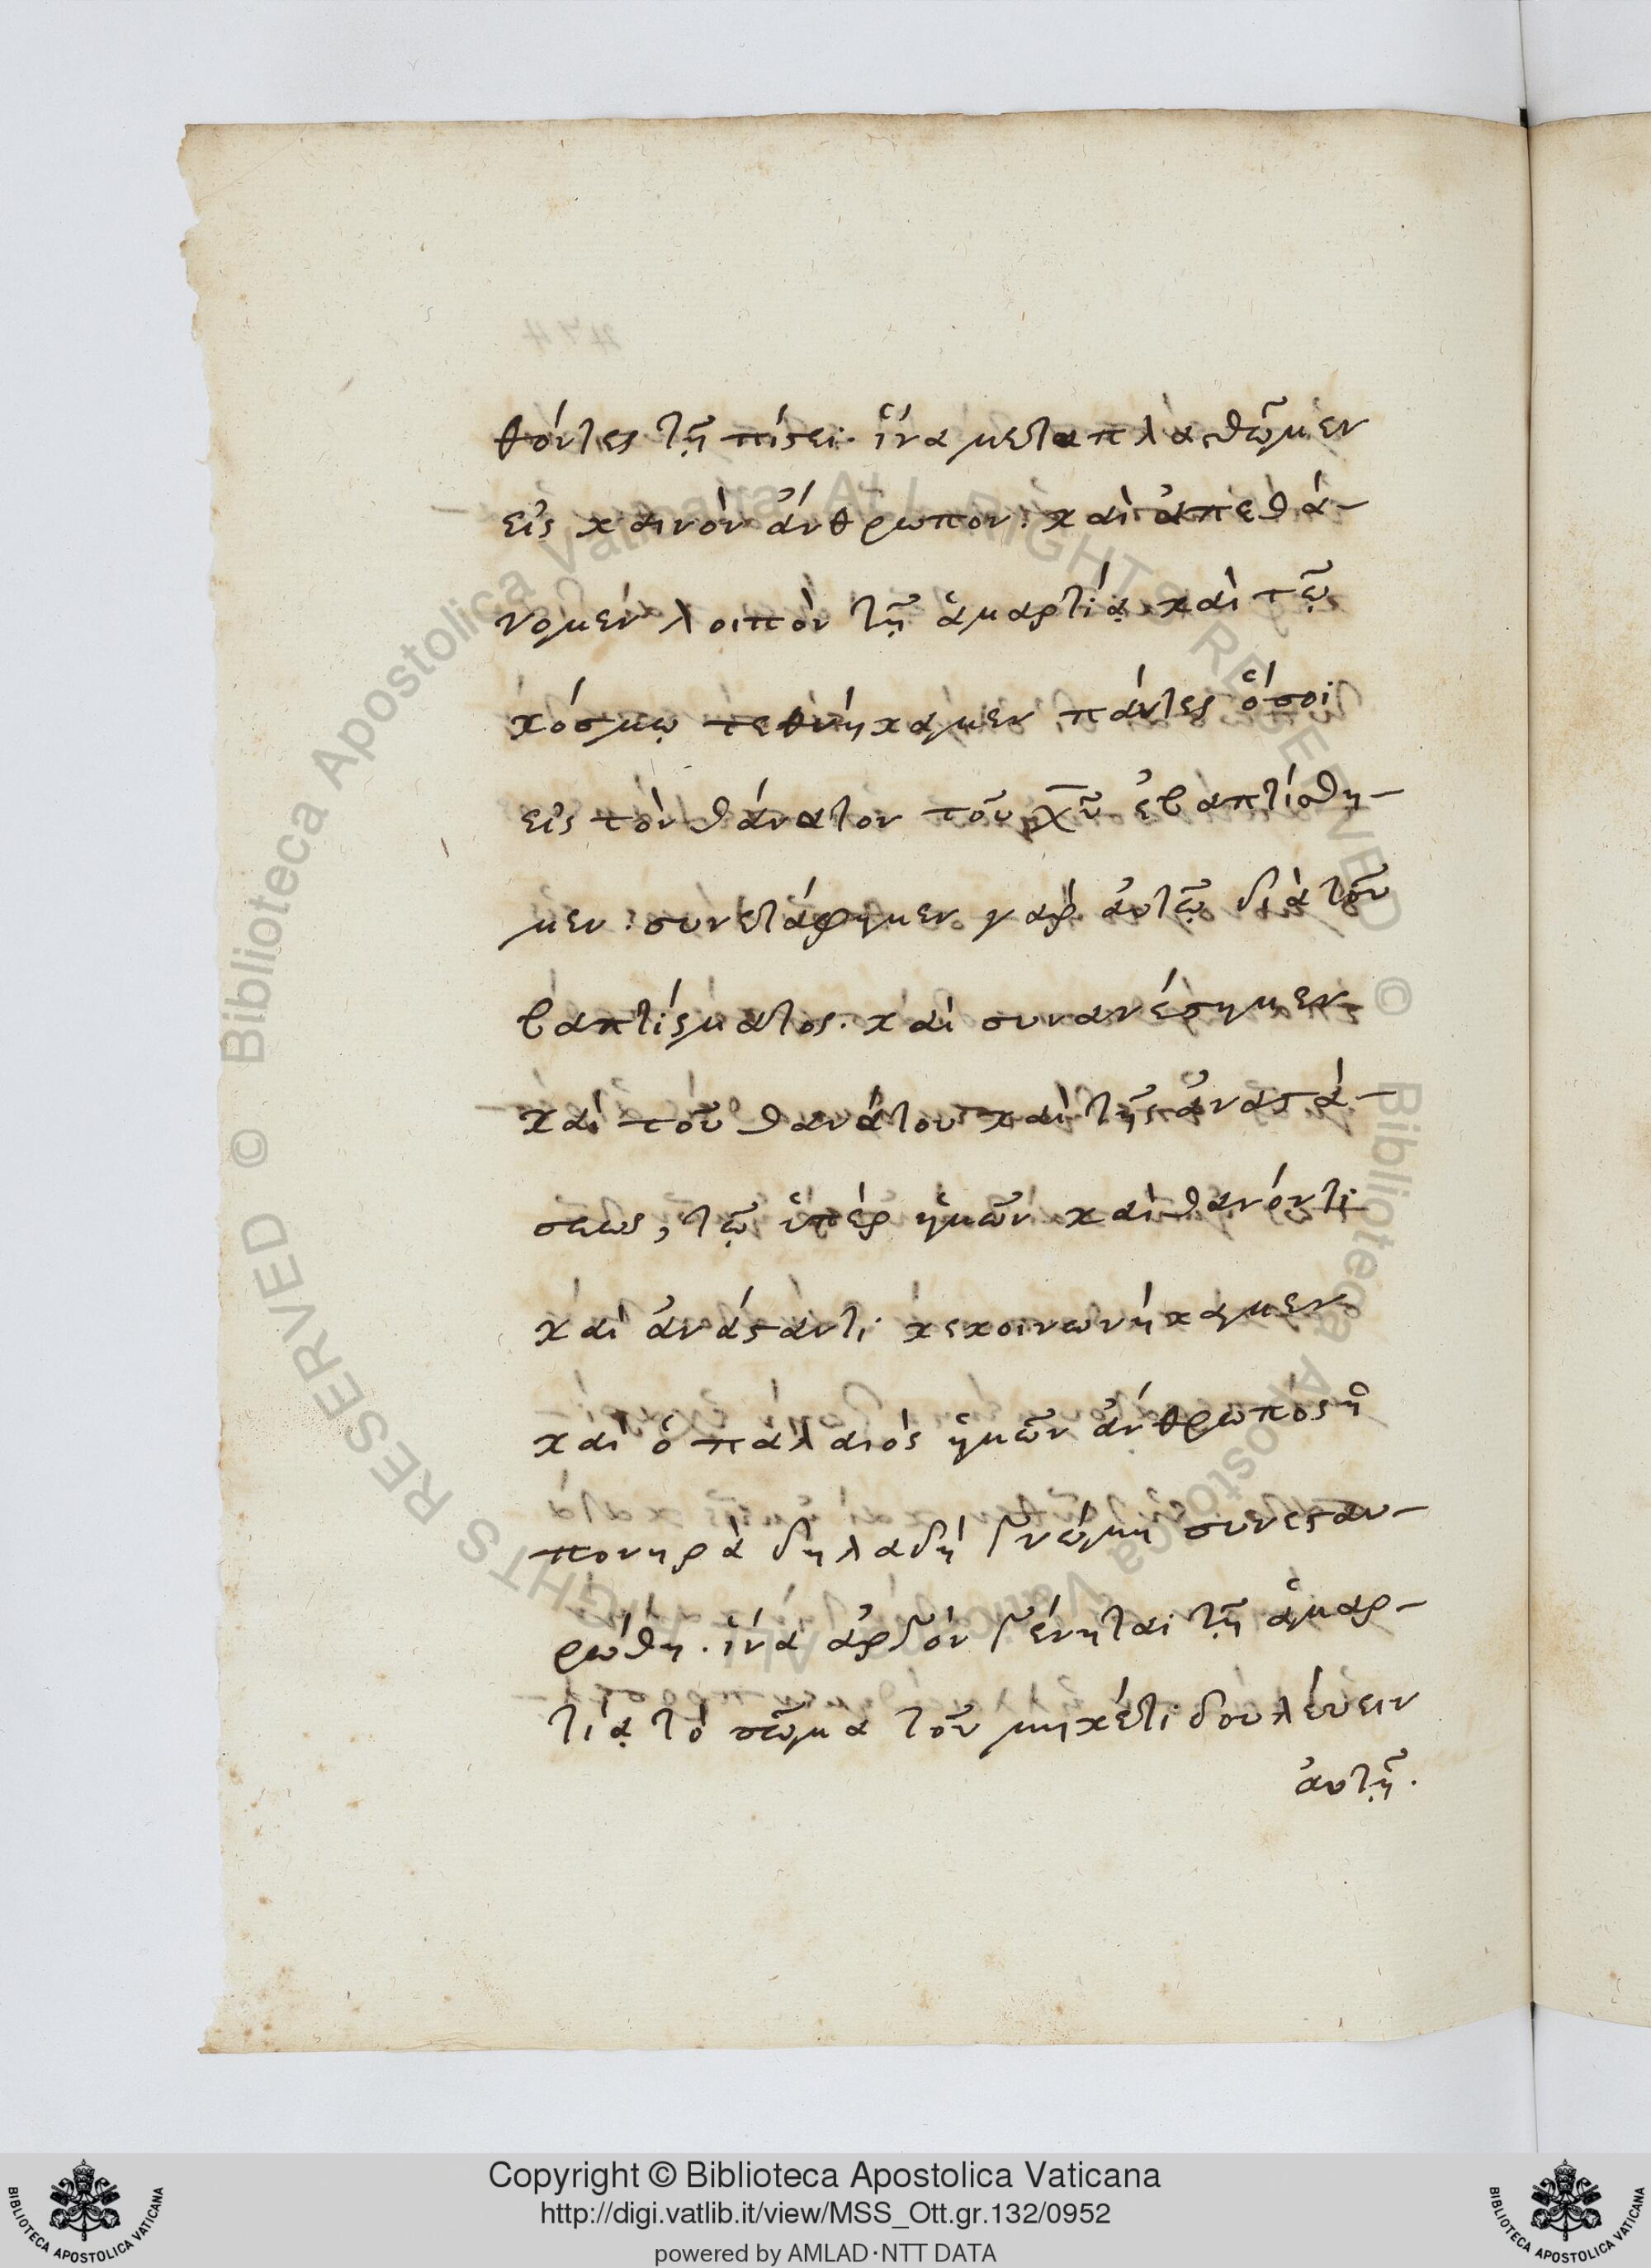 θόντες τῇ πίστει· ἵνα μεταπλασθῶμεν
εἰς καινὸν ἄνθρωπον· καὶ ἀπεθά-
νομεν λοιπὸν τῇ ἁμαρτίᾳ· καὶ τῷ
κόσμῳ τεθνήκαμεν πάντες ὅσοι
εἰς τὸν θάνατον τοῦ χ̅υ̅ ἐβαπτίσθη-
μεν· συνετάφημεν γὰρ αὐτῷ διὰ τοῦ
βαπτίσματος· καὶ συνανέστημεν
καὶ τοῦ θανάτου καὶ τῆς ἀναστά-
σεως, τῷ ὑπὲρ ἡμῶν καὶ θανόντι
καὶ ἀναστάντι κεκοινωνήκαμεν
καὶ ὁ παλαιὸς ἡμῶν ἄνθρωπος ἡ
πονηρὰ δηλαδὴ γνώμη συνεσταυ-
ρώθη· ἵνα ἀργὸν γένηται τῇ ἁμαρ-
τίᾳ τὸ σῶμα τοῦ μηκέτι δουλεύειν
αὐτῇ.
© Biblioteca Apostolica Vaticana ALL RIGHTS RESERVED © Biblioteca Apostolica Vaticana ALL RIGHTS RESERVED
Copyright © Biblioteca Apostolica Vaticana
http://digi.vatlib.it/view/MSS_Ott.gr.132/0952
powered by AMLAD·NTT DATA
BIBLIOTECA APOSTOLICA VATICANA
BIBLIOTECA APOSTOLICA VATICANA